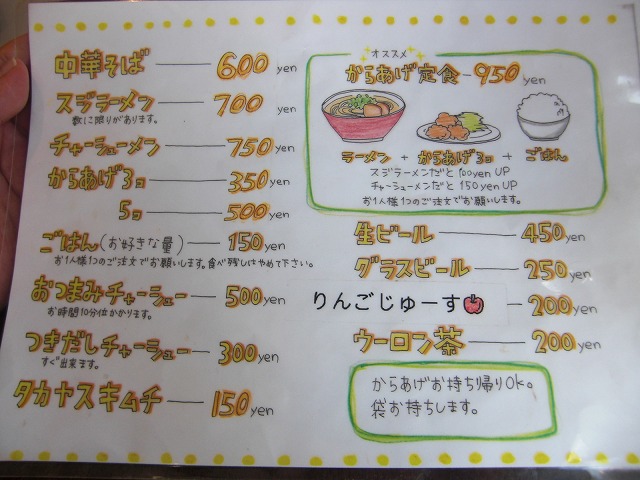 中華そば 600 yen
スジラーメン 700 yen
数に限りがあります。
チャーシューメン 750 yen
からあげ3コ 350 yen
5コ 500 yen
ごはん(お好きな量) 150 yen
お1人様1つのご注文でお願いします。食べ残しはやめて下さい。
おつまみチャーシュー 500 yen
お時間10分位かかります。
つきだしチャーシュー 300 yen
すぐ出来ます。
タカヤスキムチ 150 yen
オススメ
からあげ定食 950 yen
ラーメン + からあげ3コ + ごはん
スジラーメンだと100yen UP
チャーシューメンだと150yen UP
お1人様1つのご注文でお願いします。
生ビール 450 yen
グラスビール 250 yen
りんごじゅーす 200 yen
ウーロン茶 200 yen
からあげお持ち帰りOK。
袋お持ちします。